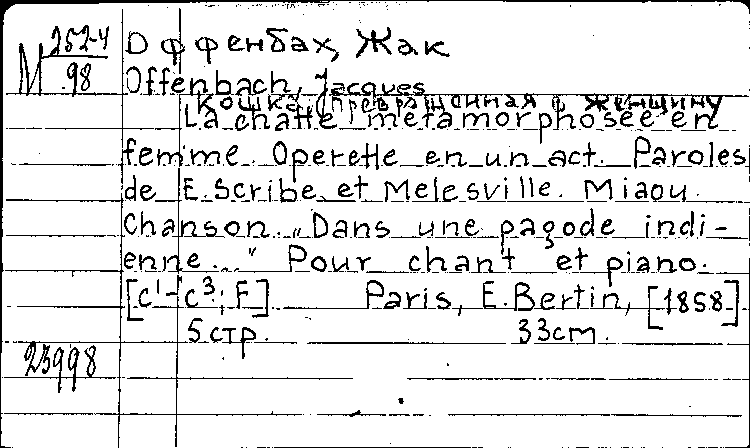 М 252-4
98
Оффенбах, Жак
Offenbach, Jacques
Кошка, превращенная в женщину
La chatte metamorphosée en
femme. Operette en un act. Paroles
de E. Scribe et Melesville. Miaou.
Chanson „Dans une pagode indi-
enne..." Pour chant et piano.
[c¹-c³; F] Paris, E. Bertin, [1858]
5 стр. 33cm.
23998